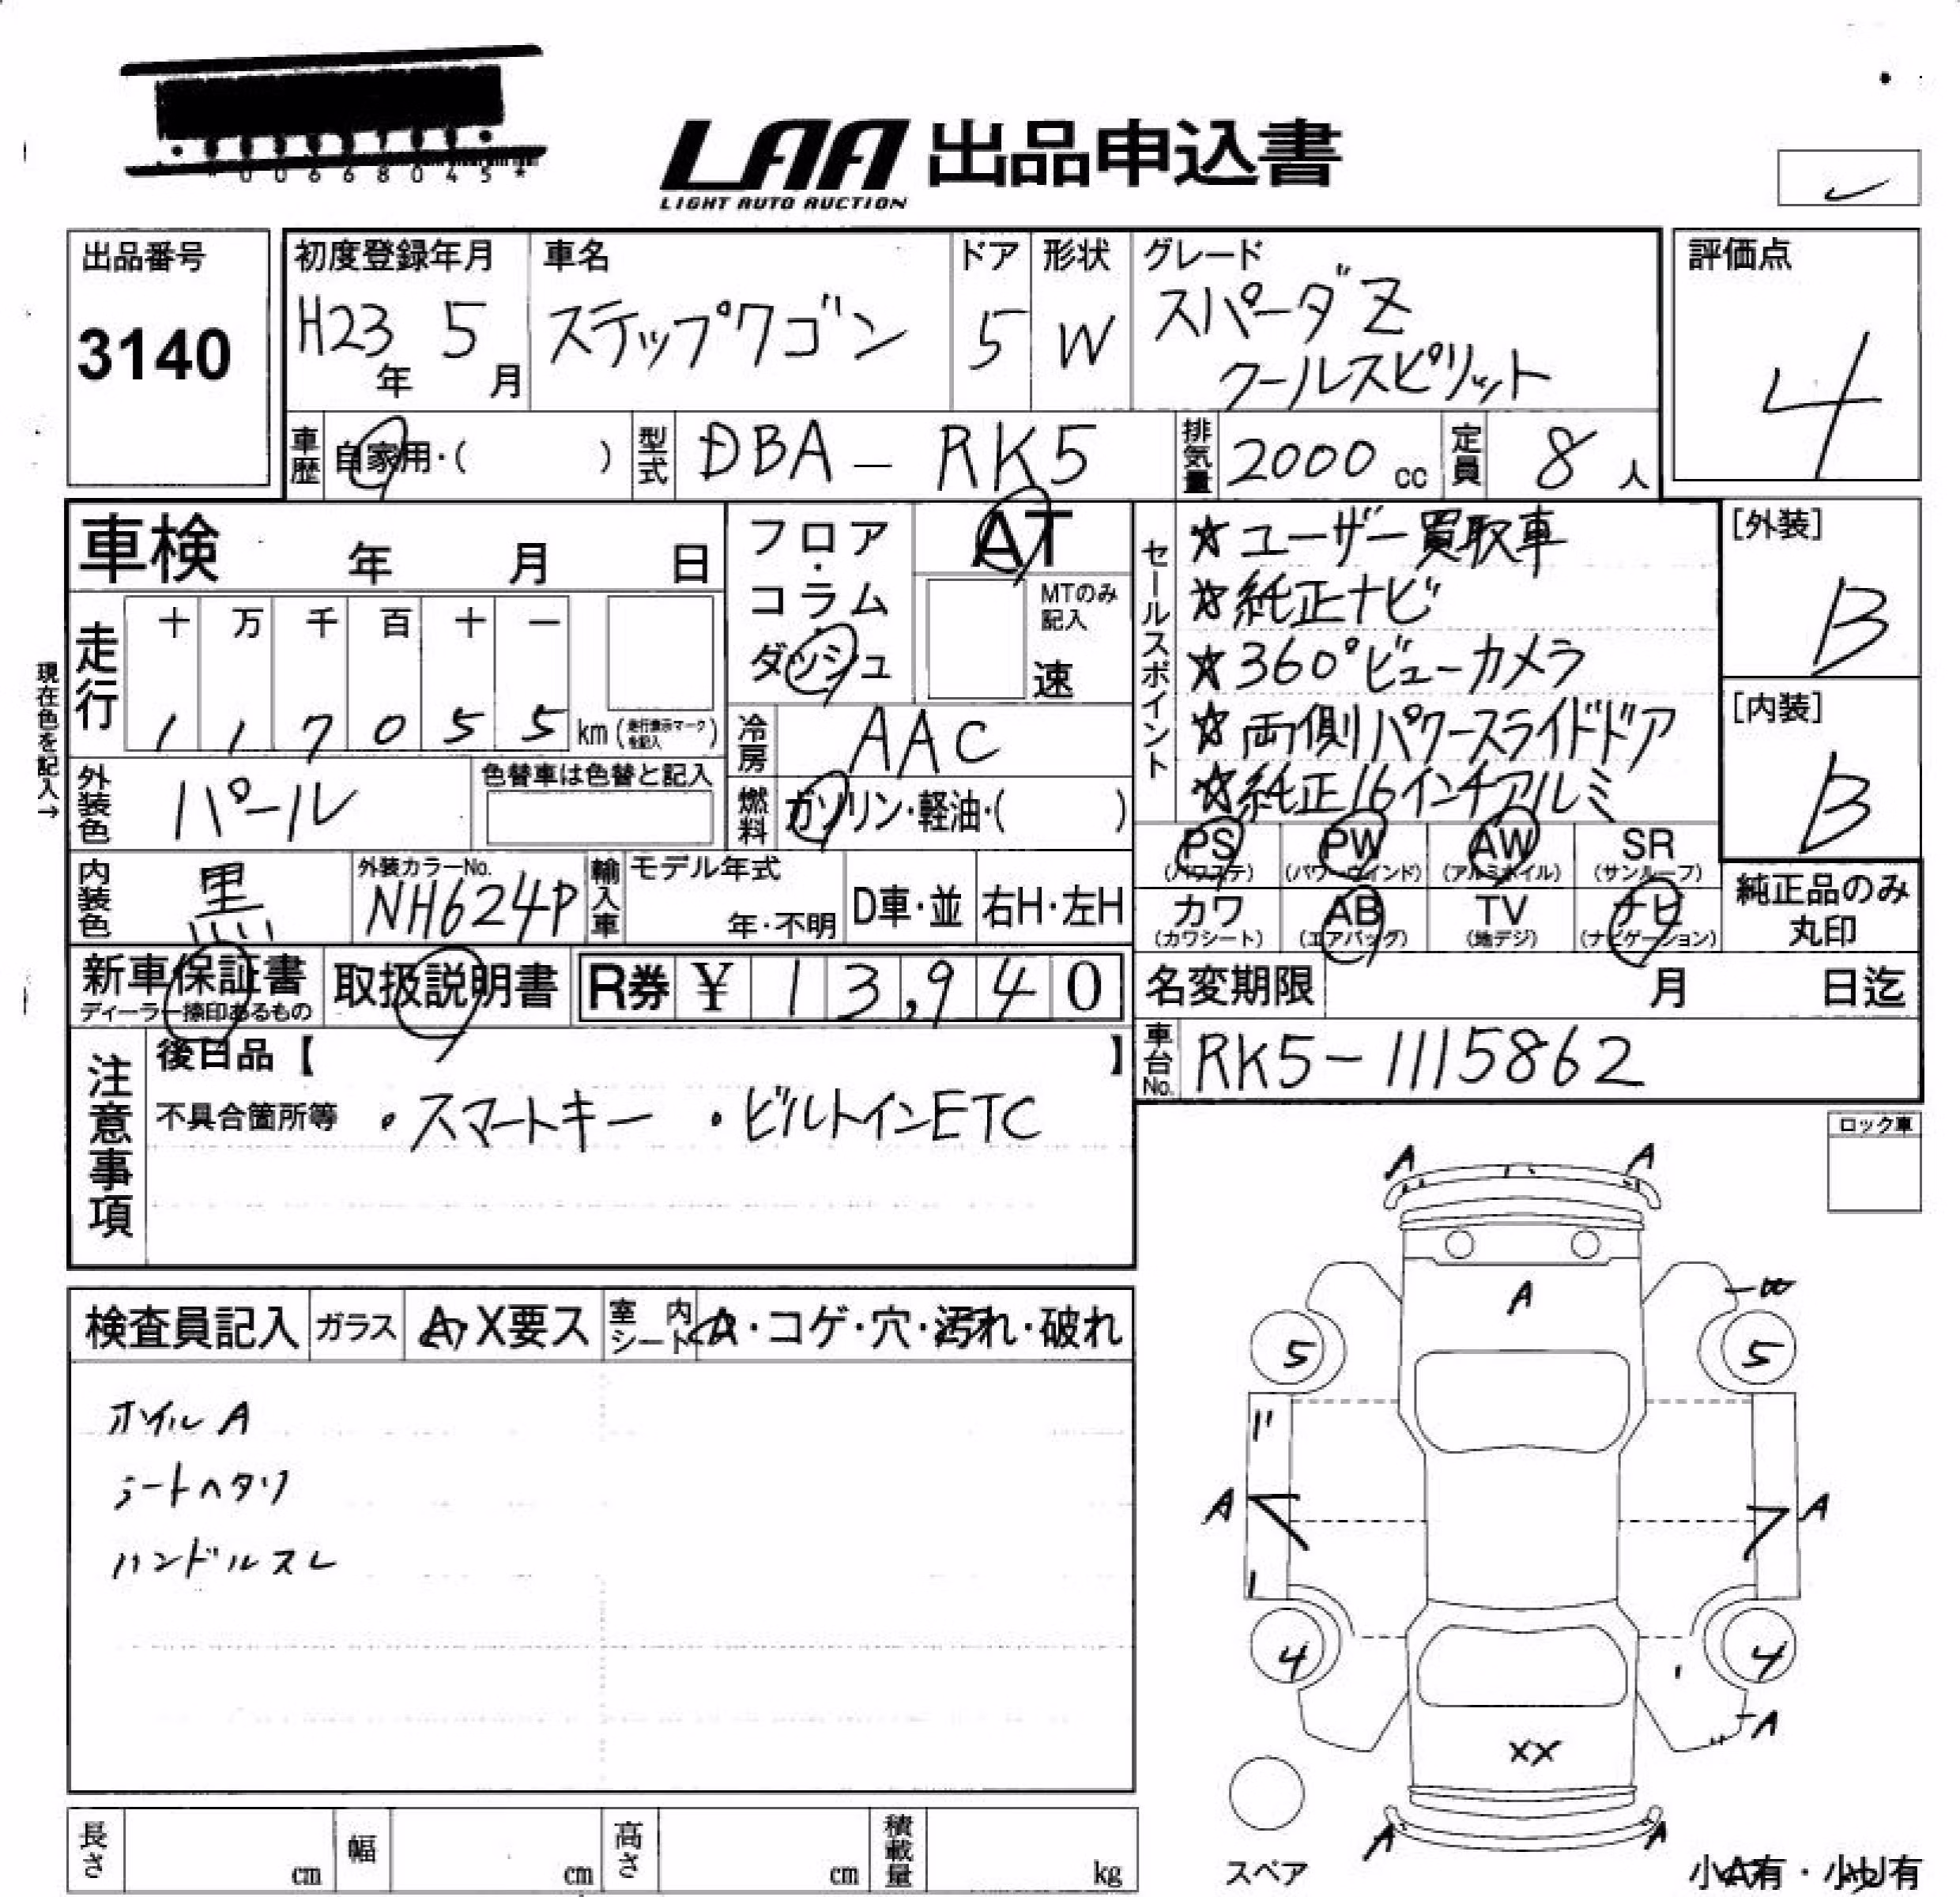 *00668045*
LAA 出品申込書
LIGHT AUTO AUCTION
出品番号
3140
初度登録年月
H23年 5月
車名
ステップワゴン
ドア
5
形状
W
グレード
スパーダZ
クールスピリット
評価点
4
車歴
自家用・( )
型式
DBA - RK5
排気量
2000 cc
定員
8 人
車検 年 月 日
フロア・
コラム・
ダッシュ
AT
MTのみ
記入
速
セールスポイント
☆ユーザー買取車
☆純正ナビ
☆360°ビューカメラ
☆両側パワースライドドア
☆純正16インチアルミ
[外装]
B
[内装]
B
現在色を記入→
走行
十 万 千 百 十 一
1 1 7 0 5 5 km (走行表示マークを記入)
冷房
AAC
外装色
パール
色替車は色替と記入
燃料
ガソリン・軽油・( )
PS
(パワステ)
PW
(パワーウインド)
AW
(アルミホイル)
SR
(サンルーフ)
カワ
(カワシート)
AB
(エアバッグ)
TV
(地デジ)
ナビ
(ナビゲーション)
純正品のみ
丸印
内装色
黒
外装カラーNo.
NH624P
輸入車
モデル年式
年・不明
D車・並
右H・左H
新車保証書
ディーラー捺印あるもの
取扱説明書
R券 ¥ 13,940
名変期限 月 日迄
車台No.
RK5-1115862
注意事項
後日品【 】
不具合箇所等 ・スマートキー ・ビルトインETC
ロック車
検査員記入
ガラス
A・X要ス
室内シート
A・コゲ・穴・汚れ・破れ
ホイルA
シートヘタリ
ハンドルスレ
A A
A
W
5 5
A A
4 4
A
XX
A A
スペア
小A有・小U有
長さ cm
幅 cm
高さ cm
積載量 kg